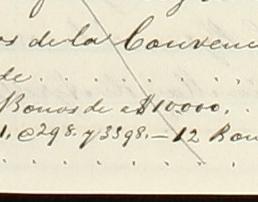 os de la Conven
de . . . . . . . .
Bonos de a $10.000. .
1, e 298. y 3398. — 12 Bon
. . . . . . . .